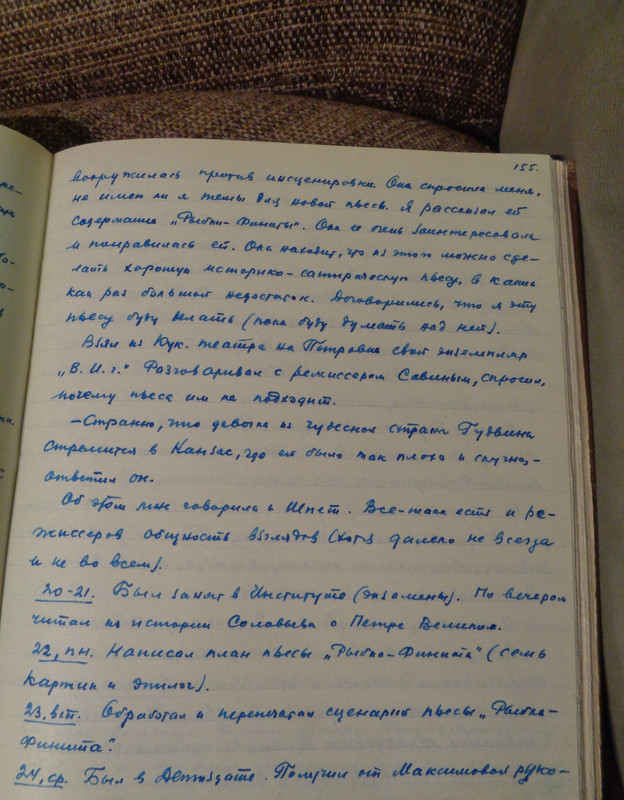 155.
вооружилась против инсценировки. Она спросила меня,
не имею ли я темы для новой пьесы. Я рассказал ей
содержание „Рыбки-Финиты". Она ее очень заинтересовала
и понравилась ей. Она находит, что из этого можно сде-
лать хорошую историко-сатирическую пьесу, в каких
как раз большой недостаток. Договорились, что я эту
пьесу буду делать (пока буду думать над ней).
Взял из Кук. театра на Петровке свой экземпляр
„В. И. г." Разговаривал с режиссером Савиным, спросил,
почему пьеса им не подходит.
—Странно, что девочка из чудесной страны Гудвина
стремится в Канзас, где ей было так плохо и скучно,-
ответил он.
Об этом мне говорила и Шпет. Все-таки есть и ре-
жиссеров общность взглядов (хотя далеко не всегда
и не во всем).
20-21. Был занят в Институте (экзамены). По вечером
читал из истории Соловьева о Петре Великом.
22, пн. Написал план пьесы „Рыбка-Финита" (семь
картин и эпилог).
23, вт. Обработал и перепечатал сценарий пьесы „Рыбка-
Финита".
24, ср. Был в Детиздате. Получил от Максимовой руко-